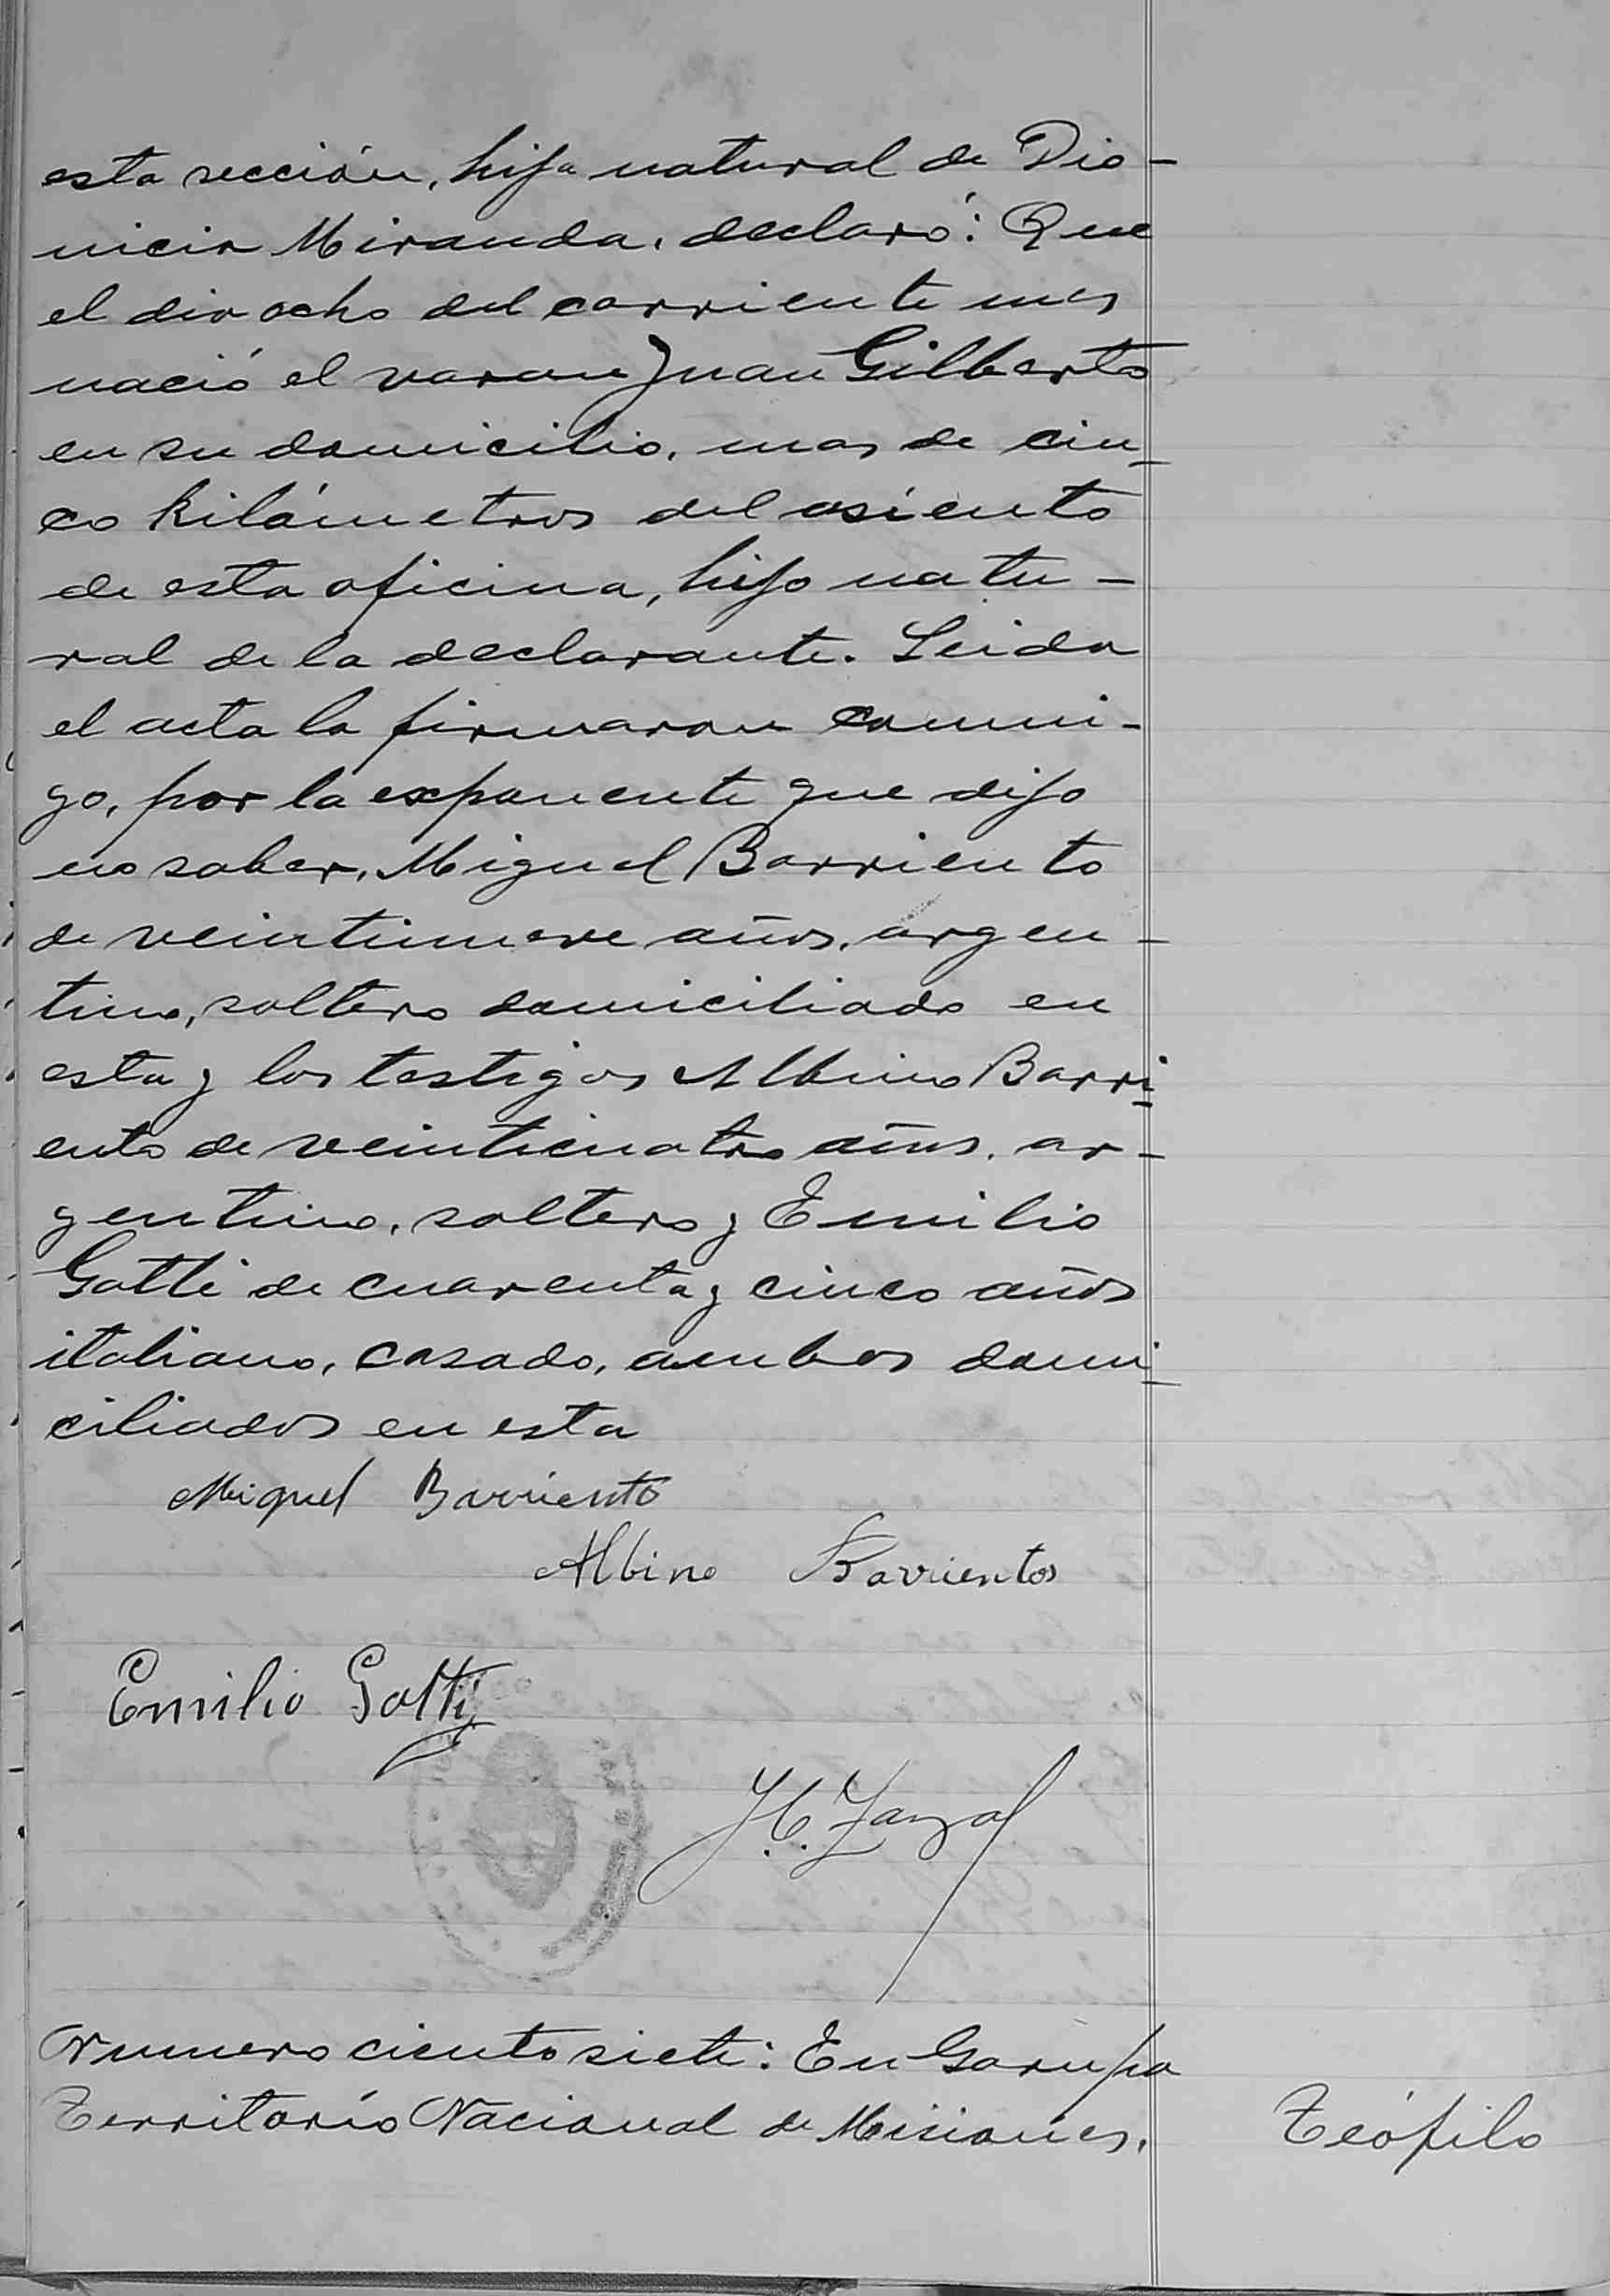 esta sección, hija natural de Dio-
nicia Miranda, declaró: Que
el dia ocho del corriente mes
nació el varon Juan Gilberto
en su domicilio, mas de cin-
co kilómetros del asiento
de esta oficina, hijo natu-
ral de la declarante. Leida
el acta la firmaron conmi-
go, por la exponente que dijo
no saber, Miguel Barriento
de veintinueve años, argen-
tino, soltero domiciliado en
esta y los testigos Albino Barri-
ento de veinticuatro años, ar-
gentino, soltero y Emilio
Gatti de cuarenta y cinco años
italiano, casado, ambos domi-
ciliados en esta
Miguel Barriento
Albino Barrientos
Emilio Gatti
Numero ciento siete: En Garupa
Territorio Nacional de Misiones,
Teófilo